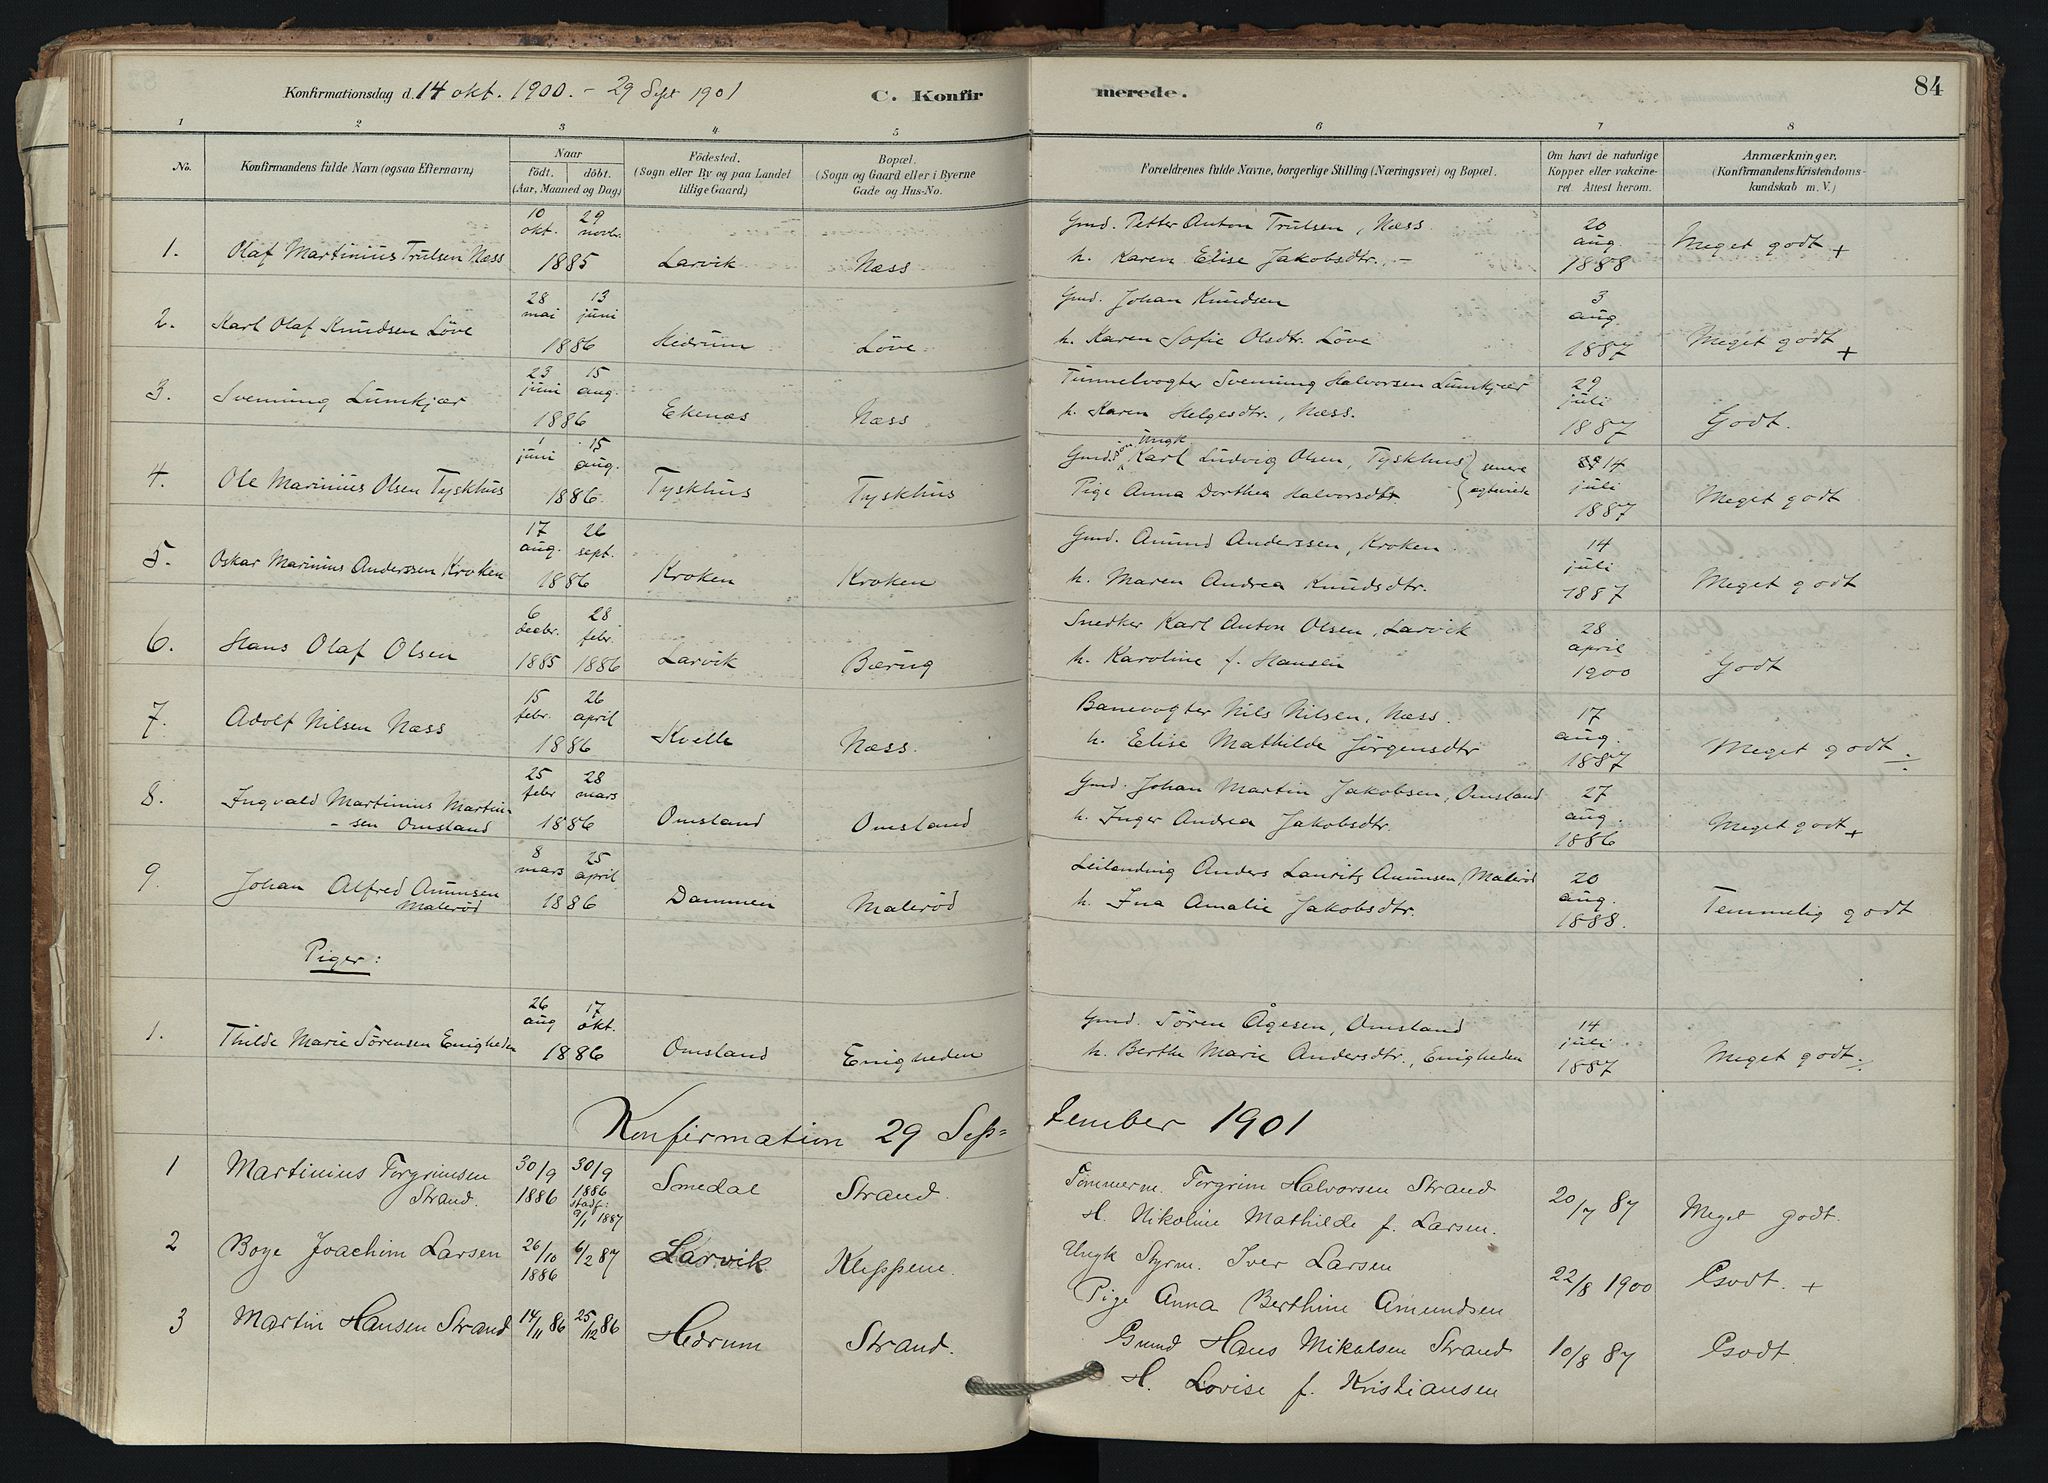 Konfirmationsdag d. 14 okt. 1900. - 29 Sept 1901
C. Konfir merede.
84
1 2 3 4 5 6 7 8
No.
Konfirmandens fulde Navn (ogsaa Efternavn)
Naar
födt. döbt.
(Aar, Maaned og Dag)
Födested.
(Sogn eller By og paa Landet
tillige Gaard)
Bopæl.
(Sogn og Gaard eller i Byerne
Gade og Hus-No.
Forældrenes fulde Navne, borgerlige Stilling (Næringsvei) og Bopæl.
Om havt de naturlige
Kopper eller vakcine-
ret. Attest herom.
Anmærkninger.
(Konfirmandens Kristendoms-
kundskab m. V.)
1. Olaf Martinius Trulsen Næss 10 okt. 29 novbr. 1885 Larvik Næss Gmd. Petter Anton Trulsen, Næss. 20 aug. 1888 Meget godt +
h. Karen Elise Jakobsdtr. -
2. Karl Olaf Knudsen Löve 28 mai 13 juni 1886 Hedrum Löve Gmd. Johan Knudsen 3 aug. 1887 Meget godt +
h. Karen Sofie Olsdtr. Löve
3. Svenning Lumkjær 23 juni 15 aug. 1886 Ekenæs Næss Tunnelvogter Svenning Halvorsen Lumkjær 29 juli 1887 Godt.
h. Karen Helgesdtr., Næss.
4. Ole Marinius Olsen Tyskhus 1 juni 15 aug. 1886 Tyskhus Tyskhus Gmds. Ungk Karl Ludvig Olsen, Tyskhus senere 14 juli 1887 Meget godt
Pige Anna Dorthea Halvorsdtr egteviede
5. Oskar Marinius Anderssen Kroken 17 aug. 26 sept. 1886 Kroken Kroken Gmd. Amund Anderssen, Kroken. 14 juli 1887 Meget godt
h. Maren Andrea Knudsdtr.
6. Hans Olaf Olsen 6 decbr. 1885 28 febr. 1886 Larvik Bærug Snedker Karl Anton Olsen, Larvik 28 april 1900 Godt
h. Karoline f. Hansen
7. Adolf Nilsen Næss 15 febr. 26 april 1886 Kvelle Næss. Banevogter Nils Nilsen, Næss. 17 aug. 1887 Meget godt ÷
h. Elise Mathilde Jörgensdtr
8. Ingvald Martinius Martin- 25 febr 28 mars 1886 Omsland Omsland Gmd. Johan Martin Jakobsen, Omsland 27 aug. 1886 Meget godt +
- sen Omsland h. Inger Andrea Jakobsdtr.
9. Johan Alfred Amunsen 8 mars 25 april 1886 Dammen Malerød Leilending Anders Lauritz Amunsen, Malerød 20 aug. 1888. Temmelig godt
Malerød h. Ina Amalie Jakobsdtr.
Piger:
1. Thilde Marie Sørensen Enigheden 26 aug 17 okt. 1886 Omsland Enigheden Gmd. Sören Ågesen, Omsland 14 juli 1887 Meget godt ÷
h. Berthe Marie Andersdtr., Enigheden
Konfirmation 29 Sep= tember 1901
1 Martinius Torgrimsen 30/9 1886 30/9 1886 stadf: 9/1 1887 Smedal Strand. Tömmerm. Torgrim Halvorsen Strand 20/7 87 Meget godt.
Strand. H. Nikoline Mathilde f. Larsen.
2 Boye Joachim Larsen 26/10 1886 6/2 87 Larvik Kleppene. Ungk Styrm. Iver Larsen 22/8 1900 Godt. +
Pige Anna Berthine Amundsen
3 Martin Hansen Strand 14/11 86 25/12 86 Hedrum Strand. Grmd Hans Mikalsen Strand 10/8 87 Godt.
H. Lovise f. Kristiansen